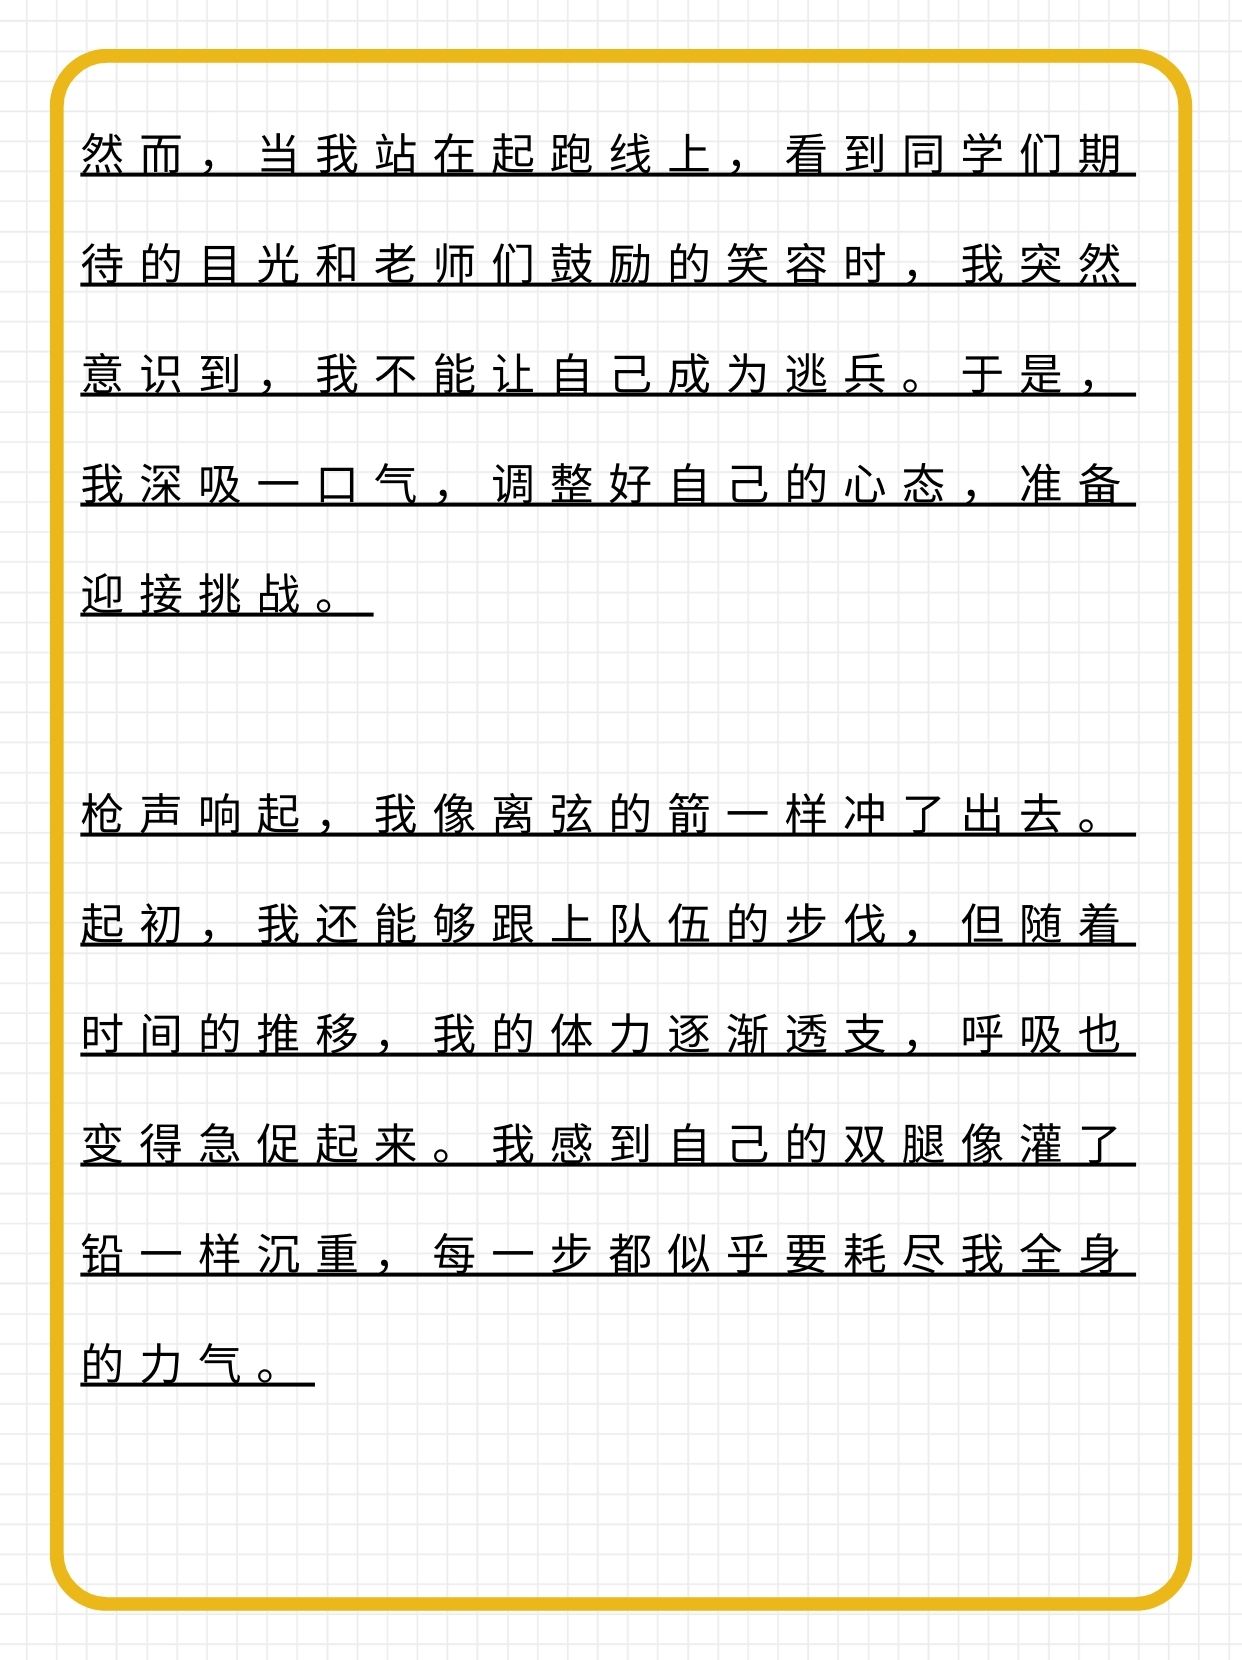 然而，当我站在起跑线上，看到同学们期
待的目光和老师们鼓励的笑容时，我突然
意识到，我不能让自己成为逃兵。于是，
我深吸一口气，调整好自己的心态，准备
迎接挑战。
枪声响起，我像离弦的箭一样冲了出去。
起初，我还能够跟上队伍的步伐，但随着
时间的推移，我的体力逐渐透支，呼吸也
变得急促起来。我感到自己的双腿像灌了
铅一样沉重，每一步都似乎要耗尽我全身
的力气。